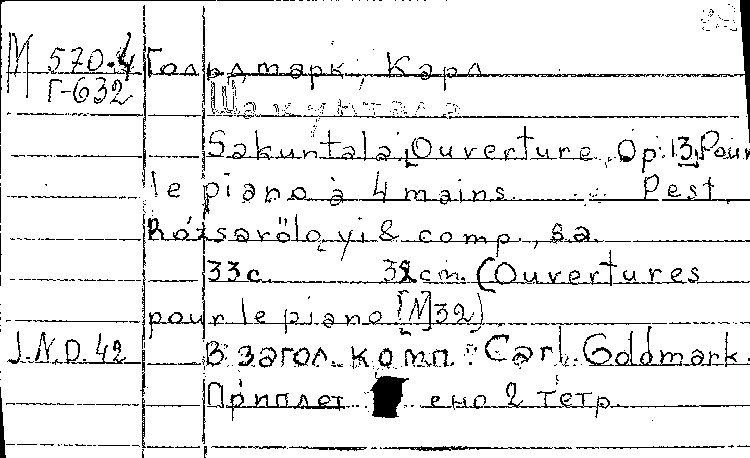 М 570.4 Гольдмарк, Карл
Г-632 Шакунтала
Sakuntala, Ouverture, Op. 13, Pour
le piano à 4 mains. Pest,
Rózsavölgyi & comp., s.a.
33c. 32cm. (Ouvertures
pour le piano [N]32)
J.N.D. 42 В загол. комп.: Carl Goldmark.
Приплетено 2 тетр.